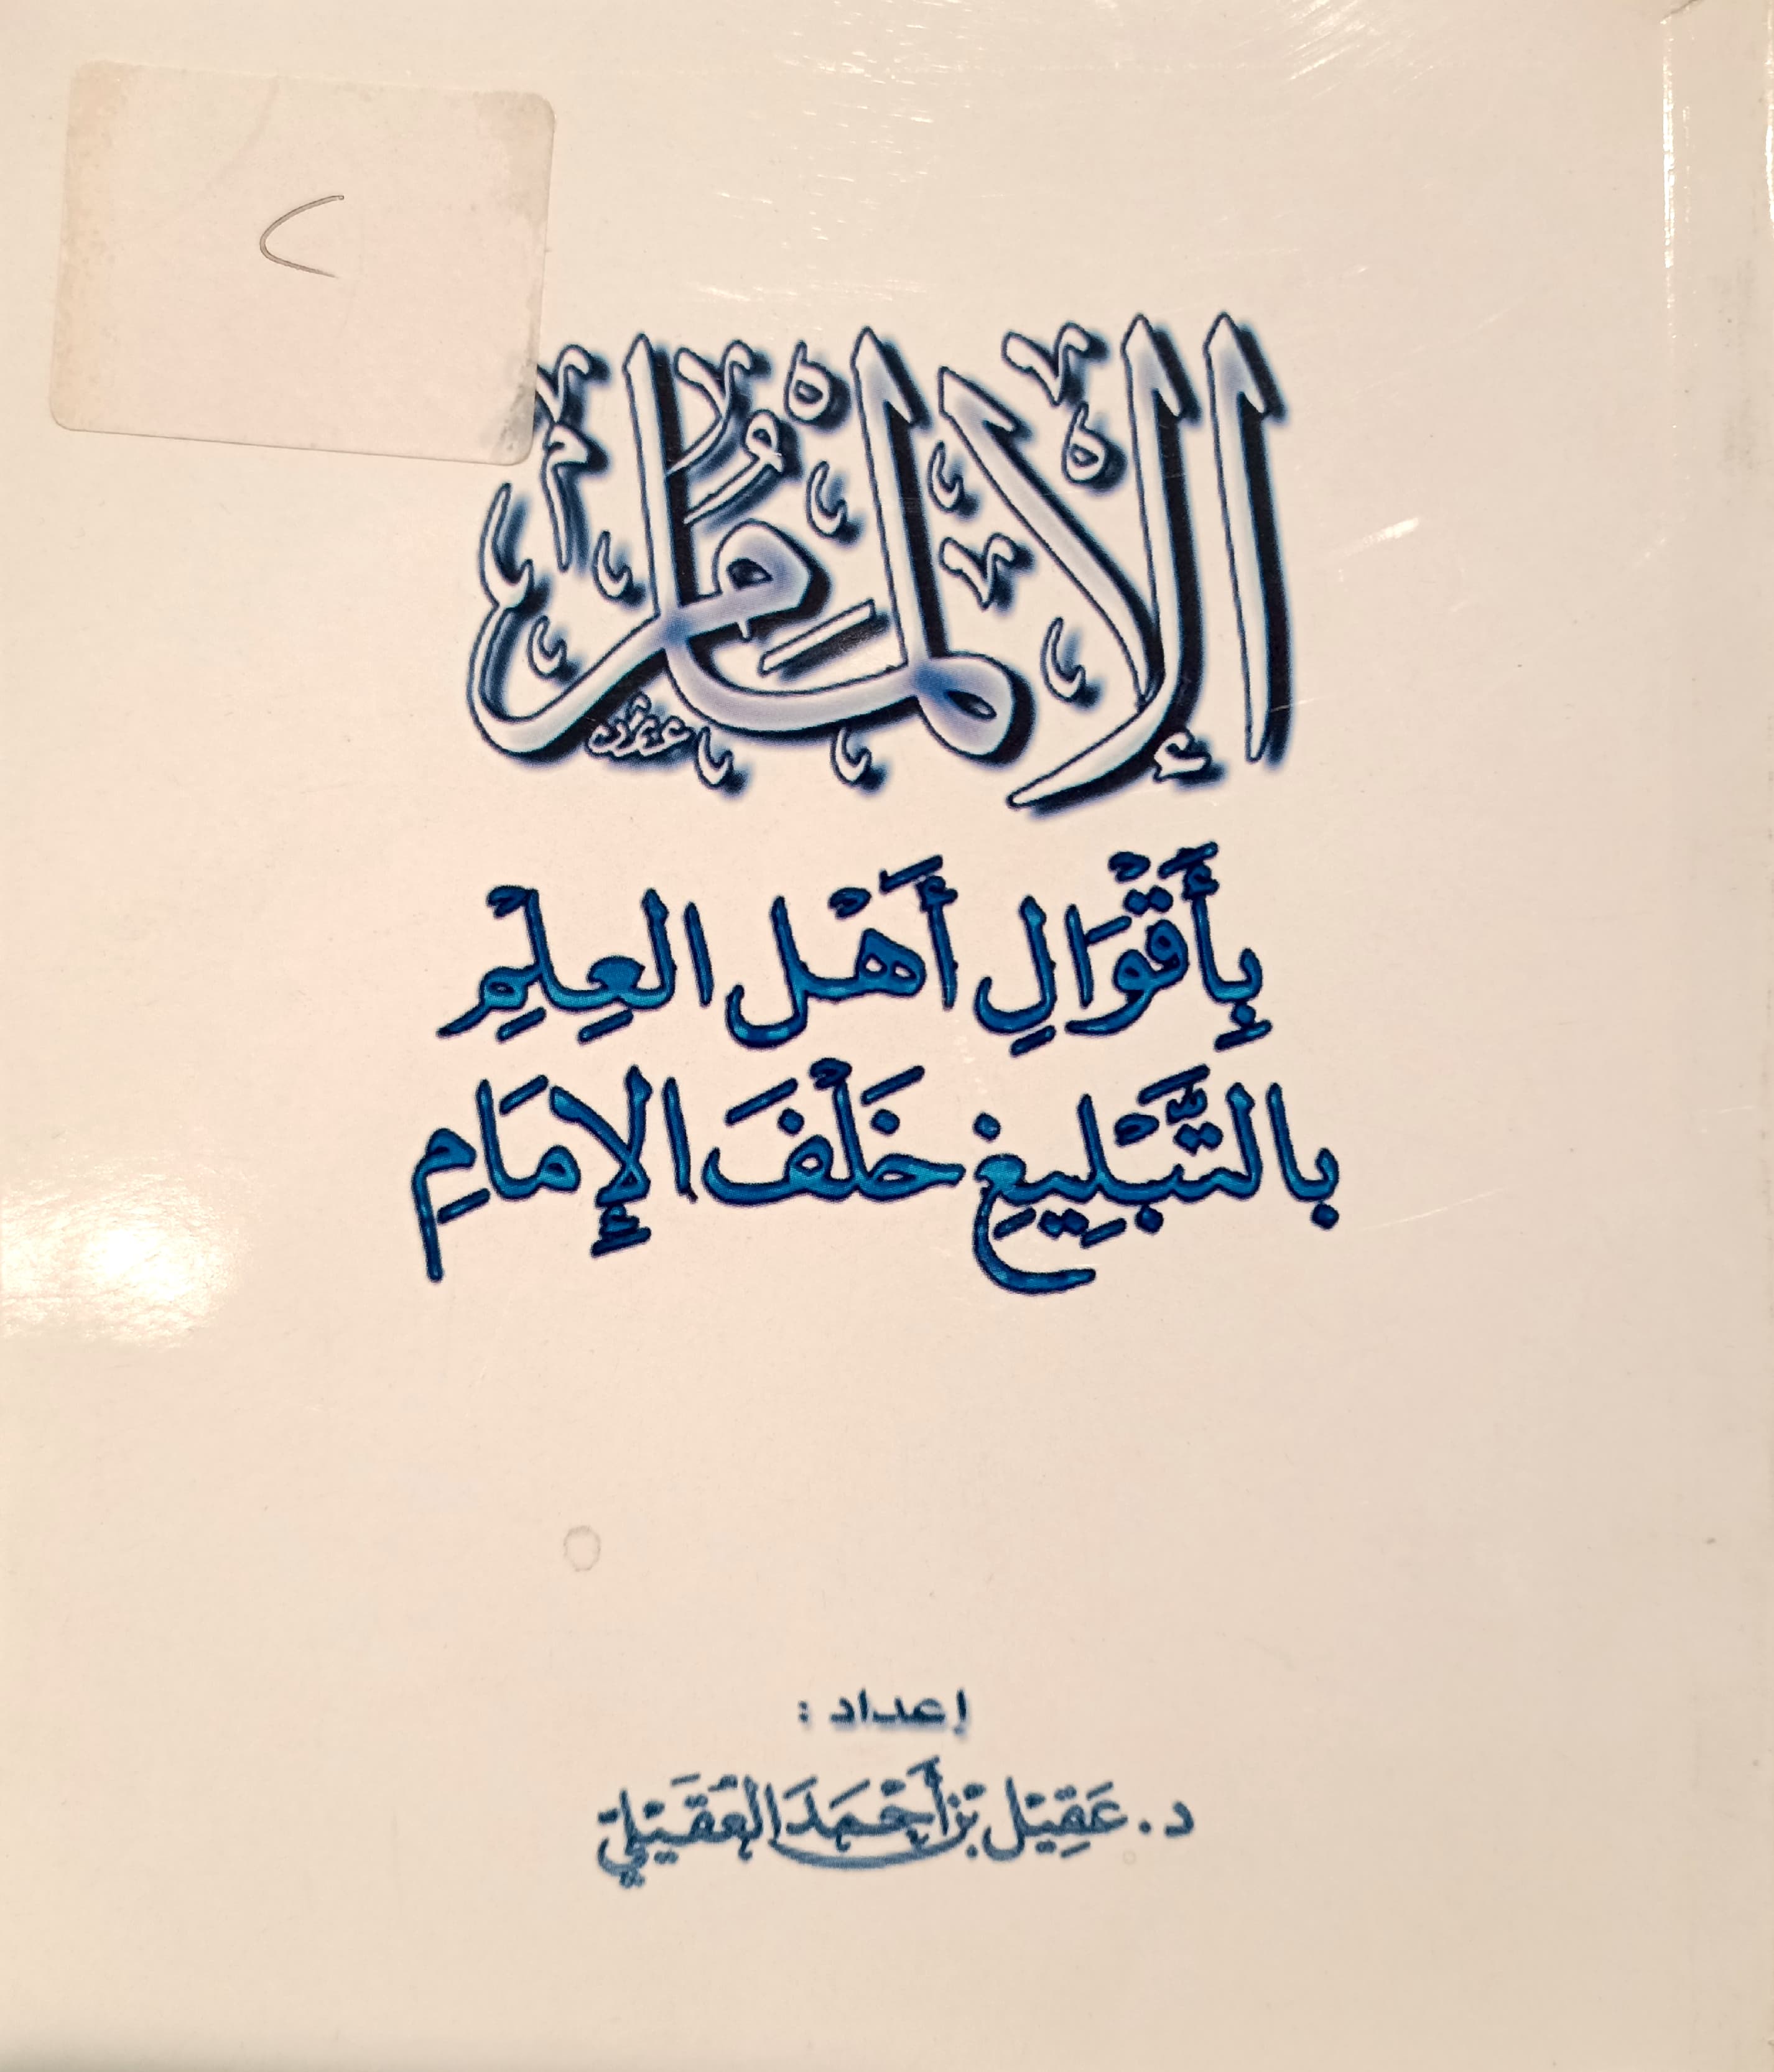 الإلمام
بِأَقْوَالِ أَهْلِ العِلْمِ
بالتَّبْلِيغِ خَلْفَ الإِمَامِ
إعداد :
د. عَقِيْل بْن أَحْمَدَ العُقَيْلِيّ